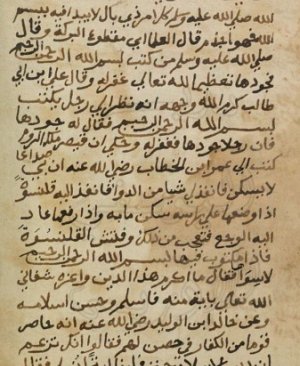 الله صلى الله عليه وسلم كل امر ذي بال لا يبدا فيه ببسم
الله فهو اجذم قال العلما اي مقطوع البركة وقال
صلى الله عليه وسلم من كتب بسم الله الرحمن الرحيم
مجودها تعظيما لله تعالى غفر له وقال علي ابن ابي
طالب كرم الله وجهه انه نظر الى رجل يكتب
بسم الله الرحمن الرحيم فقال له جودها
فان رجلا جودها فغفر له وحكي ان قيصر ملك الروم
كتب الى عمر ابن الخطاب رضي الله عنه ان بي صداعا
لا يسكن فانفذ لي شيا من الدوا فانفذ اليه قلنسوة
اذا وضعها على راسه سكن ما به واذا رفعها عاد
اليه الوجع فتعجب من ذلك وفتش القلنسوة
فاذا مكتوب فيها بسم الله الرحمن الرحيم
لا سوا فقال ما اكرم هذا الدين واعزه شفاني
الله تعالى باية منه فاسلم وحسن اسلامه
وعن خالد ابن الوليد رضي الله عنه انه حاصر
قوما من الكفار في حصن لهم فقالوا انك تزعم